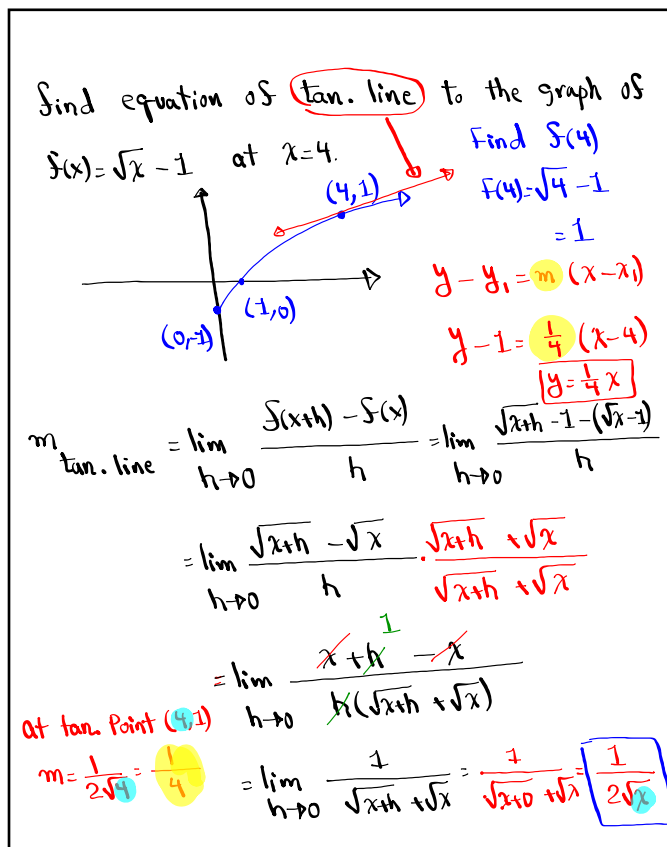 find equation of tan. line to the graph of
f(x)=√x - 1 at x=4.
Find f(4)
F(4)=√4 - 1
= 1
(4,1)
(1,0)
(0,-1)
y - y₁ = m (x - x₁)
y - 1 = 1/4 (x - 4)
y = 1/4 x
m tan. line = lim h→0 (f(x+h) - f(x))/h = lim h→0 (√(x+h) - 1 - (√x - 1))/h
= lim h→0 (√(x+h) - √x)/h · (√(x+h) + √x)/(√(x+h) + √x)
1
= lim h→0 (x + h - x)/(h(√(x+h) + √x))
at tan. Point (4,1)
m = 1/(2√4) = 1/4
= lim h→0 1/(√(x+h) + √x) = 1/(√(x+0) + √x) = 1/(2√x)